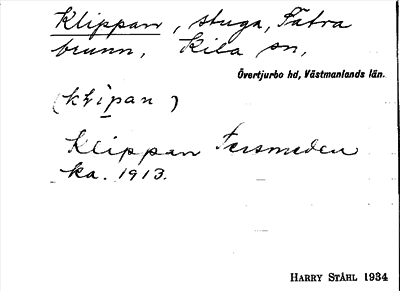 Klippan, stuga, Sätra
brunn, Kila sn,
Övertjurbo hd, Västmanlands län.
(klìpan)
Klippan Fersmeden
ka. 1913.
HARRY STÅHL 1934